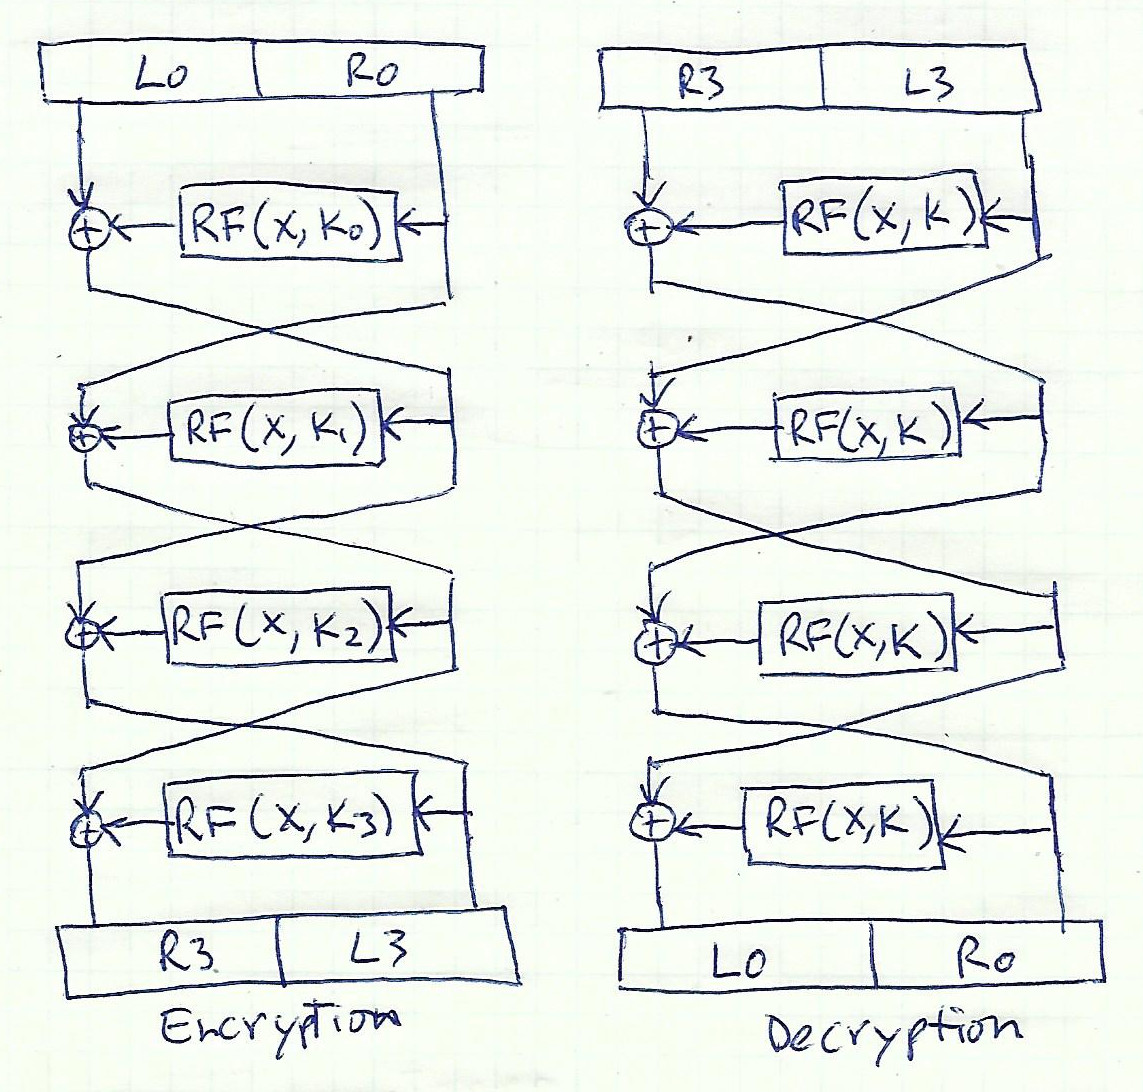 L0 R0
RF(X, K0)
RF(X, K1)
RF(X, K2)
RF(X, K3)
R3 L3
Encryption
R3 L3
RF(X, K)
RF(X, K)
RF(X, K)
RF(X, K)
L0 R0
Decryption